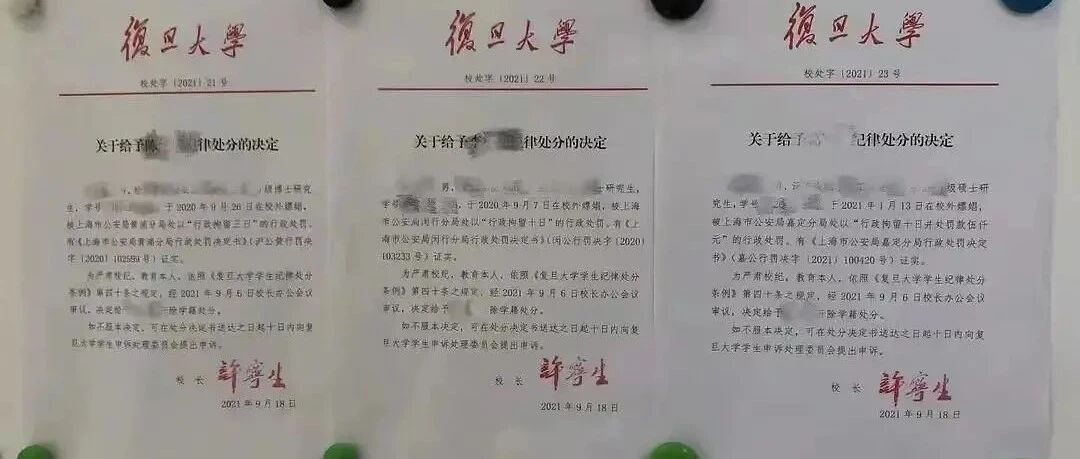 復旦大學
校处字〔2021〕21号
关于给予陈 律处分的决定
级博士研究
生，学号 于2020年9月26日在校外嫖娼，
被上海市公安局黄浦分局处以“行政拘留三日”的行政处罚。
有《上海市公安局黄浦分局行政处罚决定书》（沪公黄行罚决
字〔2020〕102559号）证实。
为严肃校纪、教育本人，依照《复旦大学学生纪律处分
条例》第四十条之规定，经2021年9月6日校长办公会议
审议，决定给予 除学籍处分。
如不服本决定，可在处分决定书送达之日起十日内向复
旦大学学生申诉处理委员会提出申诉。
校 长 許寧生
2021年9月18日
復旦大學
校处字〔2021〕22号
关于给予李 律处分的决定
男， 士研究生，
学号 ，于2020年9月7日在校外嫖娼，被上海
市公安局闵行分局处以“行政拘留十日”的行政处罚。有《上
海市公安局闵行分局行政处罚决定书》（闵公行罚决字〔2020〕
103233号）证实。
为严肃校纪、教育本人，依照《复旦大学学生纪律处分
条例》第四十条之规定，经2021年9月6日校长办公会议
审议，决定给予 除学籍处分。
如不服本决定，可在处分决定书送达之日起十日内向复
旦大学学生申诉处理委员会提出申诉。
校 长 許寧生
2021年9月18日
復旦大學
校处字〔2021〕23号
关于给予 纪律处分的决定
级硕士研
究生，学号 于2021年1月13日在校外嫖娼，
被上海市公安局嘉定分局处以“行政拘留十日并处罚款伍仟
元”的行政处罚。有《上海市公安局嘉定分局行政处罚决定
书》（嘉公行罚决字〔2021〕100420号）证实。
为严肃校纪、教育本人，依照《复旦大学学生纪律处分
条例》第四十条之规定，经2021年9月6日校长办公会议
审议，决定给予 除学籍处分。
如不服本决定，可在处分决定书送达之日起十日内向复
旦大学学生申诉处理委员会提出申诉。
校 长 許寧生
2021年9月18日